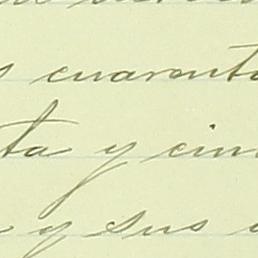 s cuarenta
ta y cin
y sus